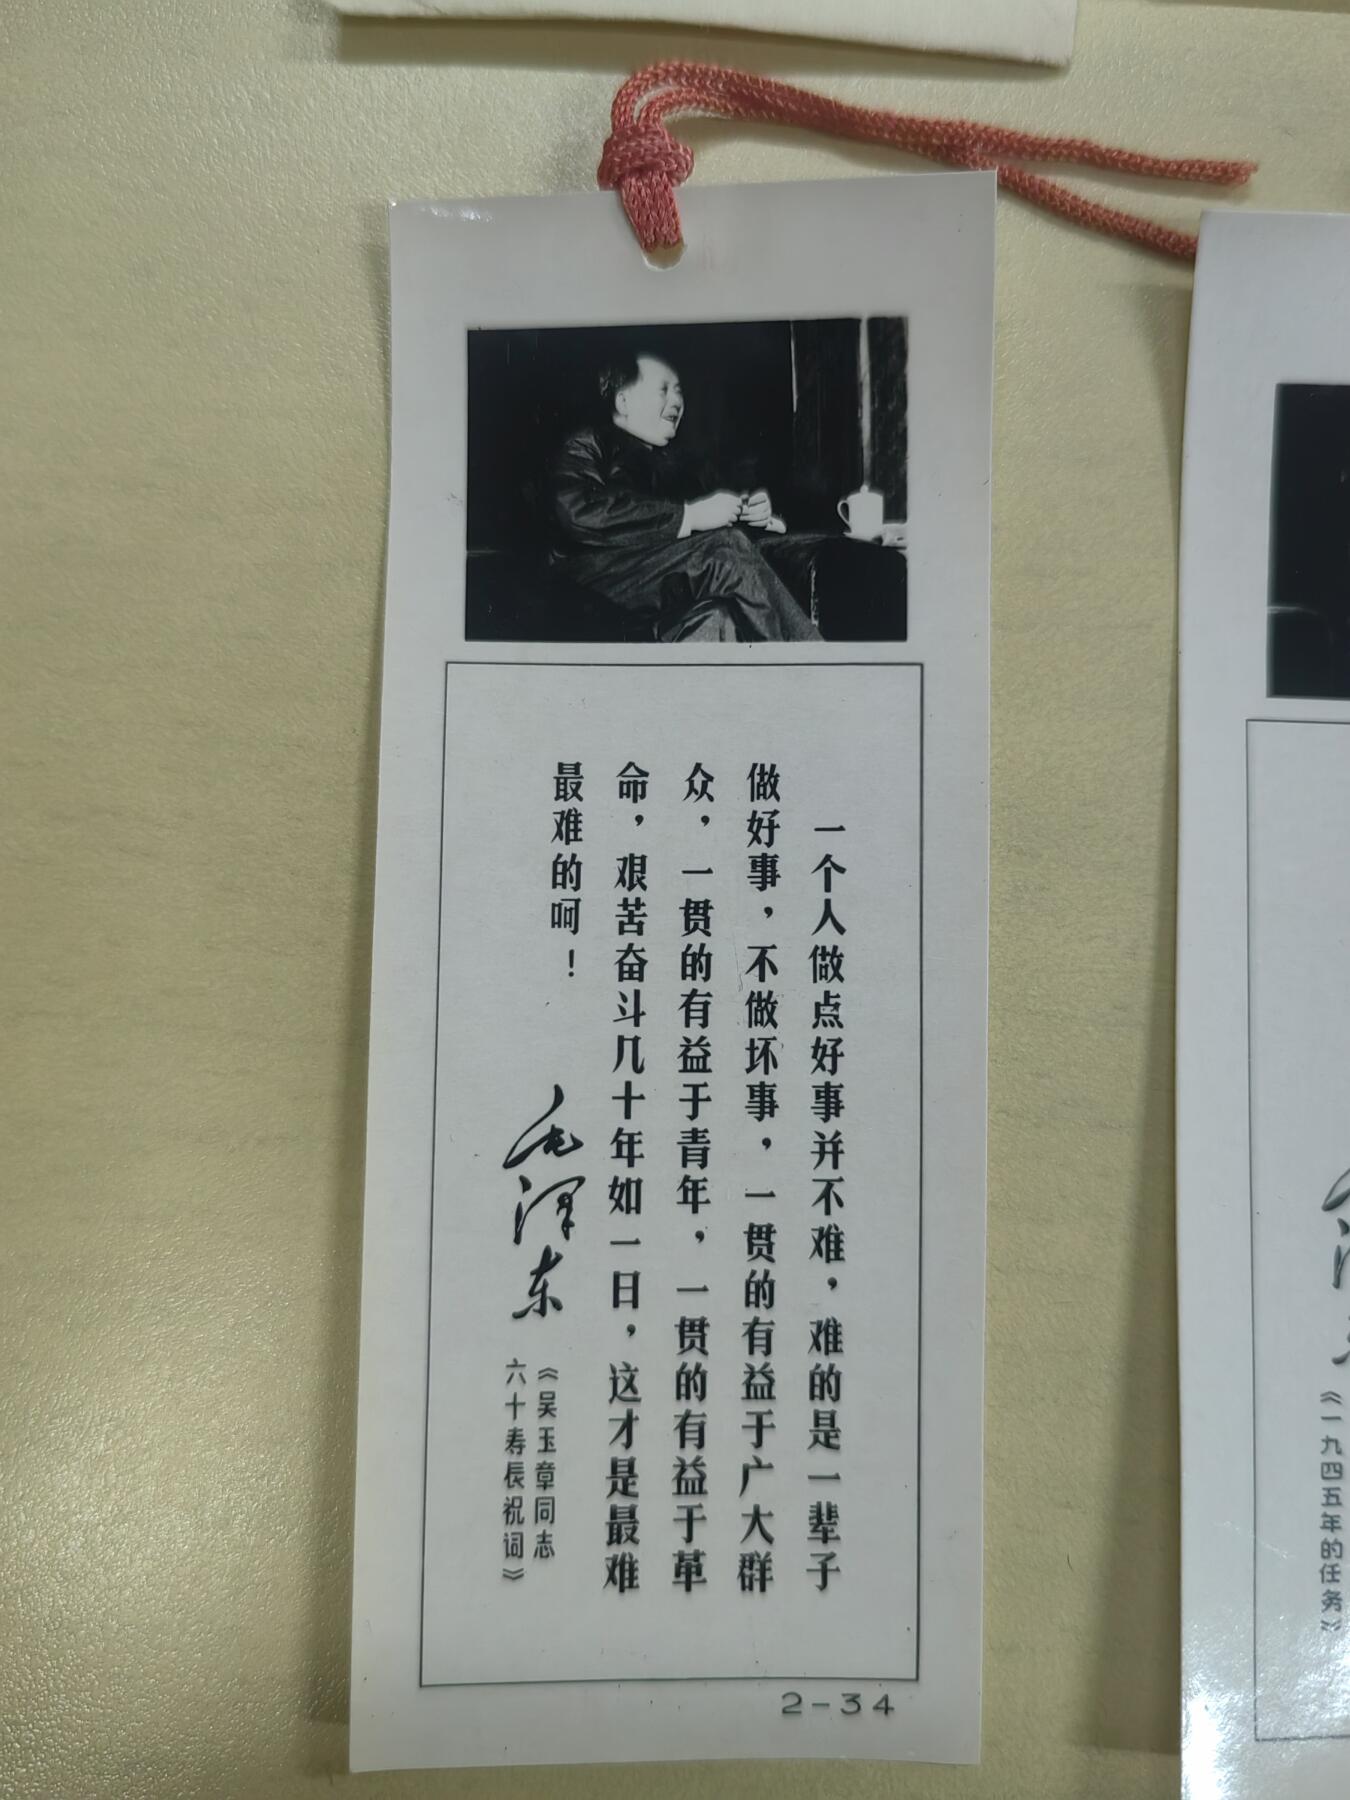 一个人做点好事并不难，难的是一辈子
做好事，不做坏事，一贯的有益于广大群
众，一贯的有益于青年，一贯的有益于革
命，艰苦奋斗几十年如一日，这才是最难
最难的呵！
毛泽东
《吴玉章同志
六十寿辰祝词》
2-34
《一九四五年的任务》